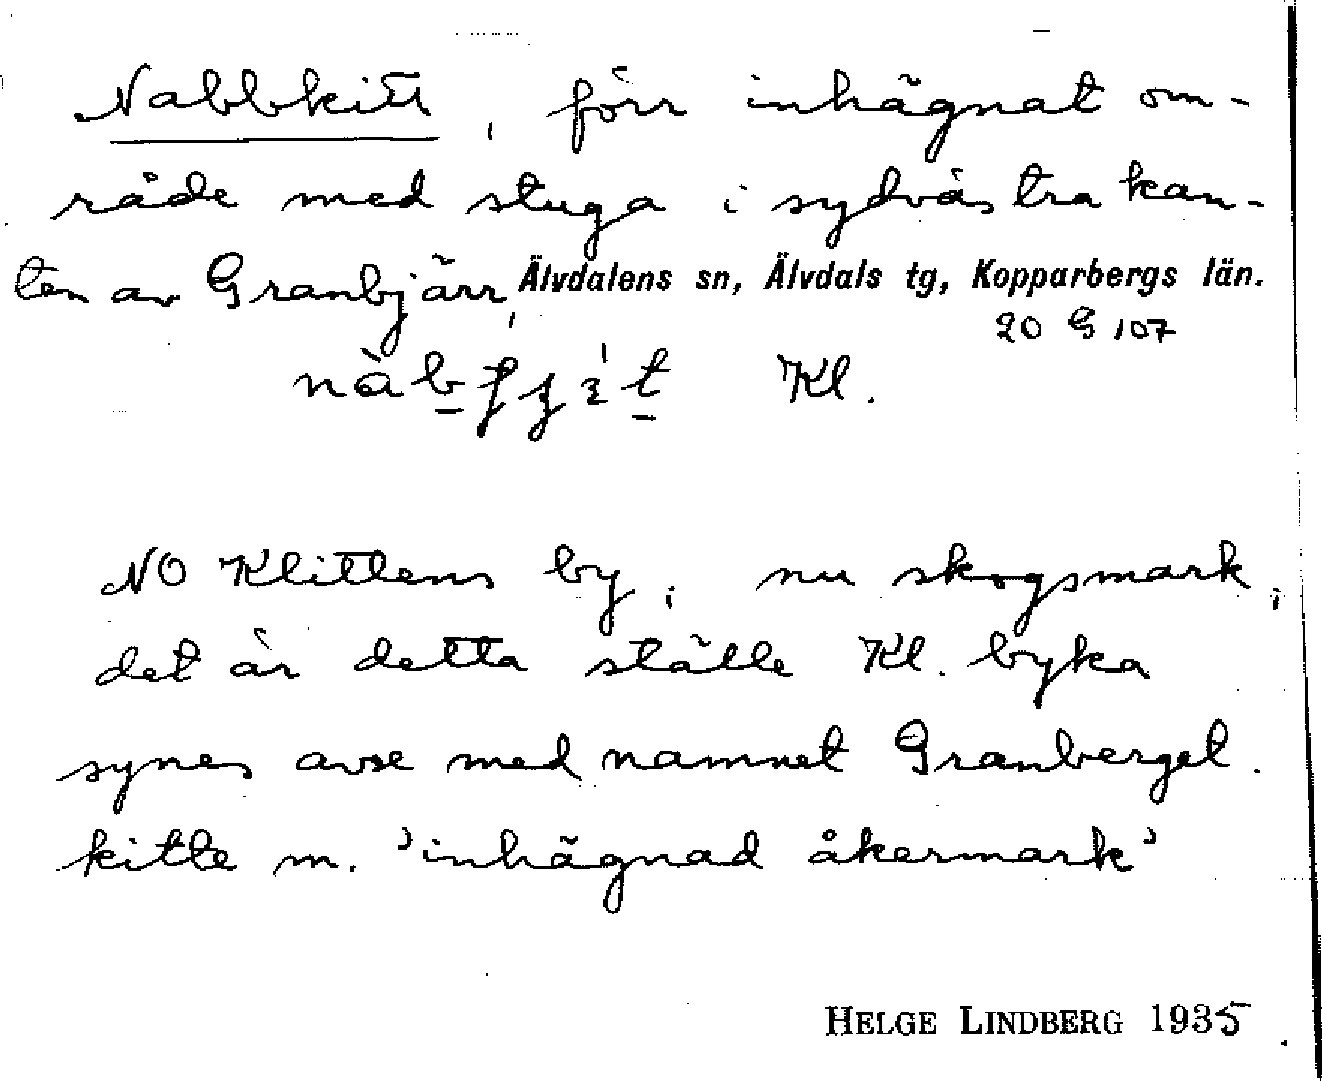 Nabbkitt, förr inhägnat om-
råde med stuga i sydvästra kan-
ten av Granbjärr, Älvdalens sn, Älvdals tg, Kopparbergs län.
20 G 107
Kl.
NO Klittens by, nu skogsmark,
det är detta ställe Kl. byka
synes avse med namnet Granberget.
kitte m. 'inhägnad åkermark'
HELGE LINDBERG 1935